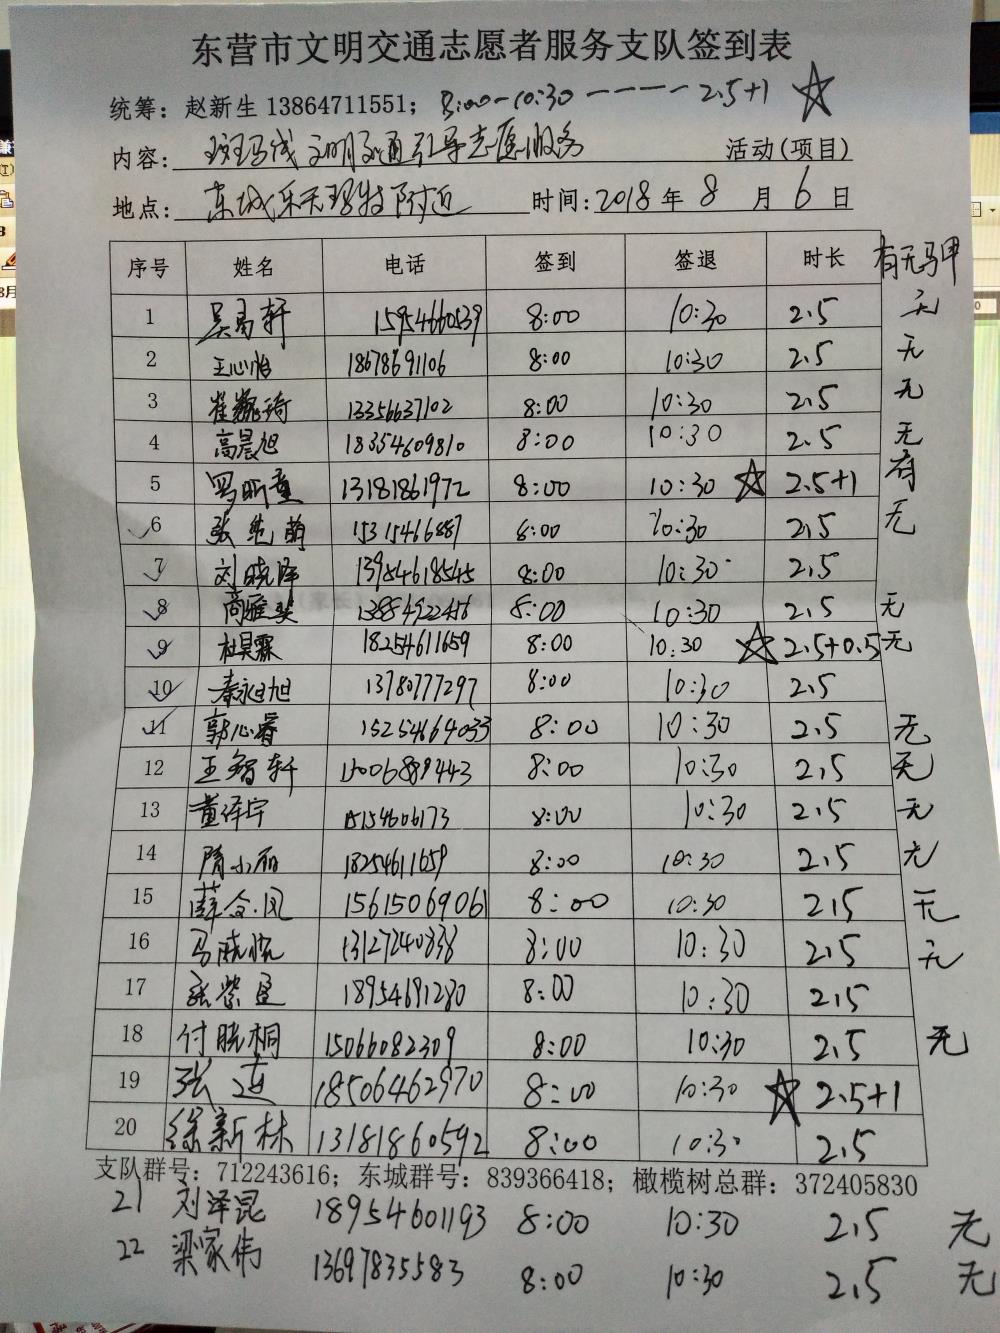 东营市文明交通志愿者服务支队签到表
统筹：赵新生 13864711551； 8:00-10:30 ---- 2.5+1 ☆
内容：斑马线文明交通引导志愿服务 活动(项目)
地点：东城乐天玛特附近 时间：2018年8月6日
序号 姓名 电话 签到 签退 时长 有无马甲
1 吴易轩 15954660539 8:00 10:30 2.5 无
2 王心怡 18678691106 8:00 10:30 2.5 无
3 崔巍琦 13356637102 8:00 10:30 2.5 无
4 高晨旭 18354609810 8:00 10:30 2.5 无
5 13181861972 8:00 10:30 ☆ 2.5+1 有
✓6 张 萌 15315466887 8:00 10:30 2.5 无
7 刘晓泽 13954618545 8:00 10:30 2.5
✓8 高雅 8:00 10:30 2.5 无
9 杜昊霖 18254611659 8:00 10:30 ☆ 2.5+0.5 无
10 秦永旭 13780777297 8:00 10:30 2.5
11 郭心睿 15254664033 8:00 10:30 2.5 无
12 王智轩 15006889443 8:00 10:30 2.5 无
13 董泽宇 8:00 10:30 2.5 无
14 隋小丽 18254611659 8:00 10:30 2.5 无
15 薛令凤 15615069061 8:00 10:30 2.5 无
16 马晓悦 13127240838 8:00 10:30 2.5 无
17 张紫 18954691280 8:00 10:30 2.5
18 付晓桐 15066082309 8:00 10:30 2.5 无
19 张莲 18506462970 8:00 10:30 ☆ 2.5+1
20 徐新林 13181860592 8:00 10:30 2.5
支队群号：712243616；东城群号：839366418；橄榄树总群：372405830
21 刘泽昆 18954601193 8:00 10:30 2.5 无
22 梁家伟 13697835583 8:00 10:30 2.5 无